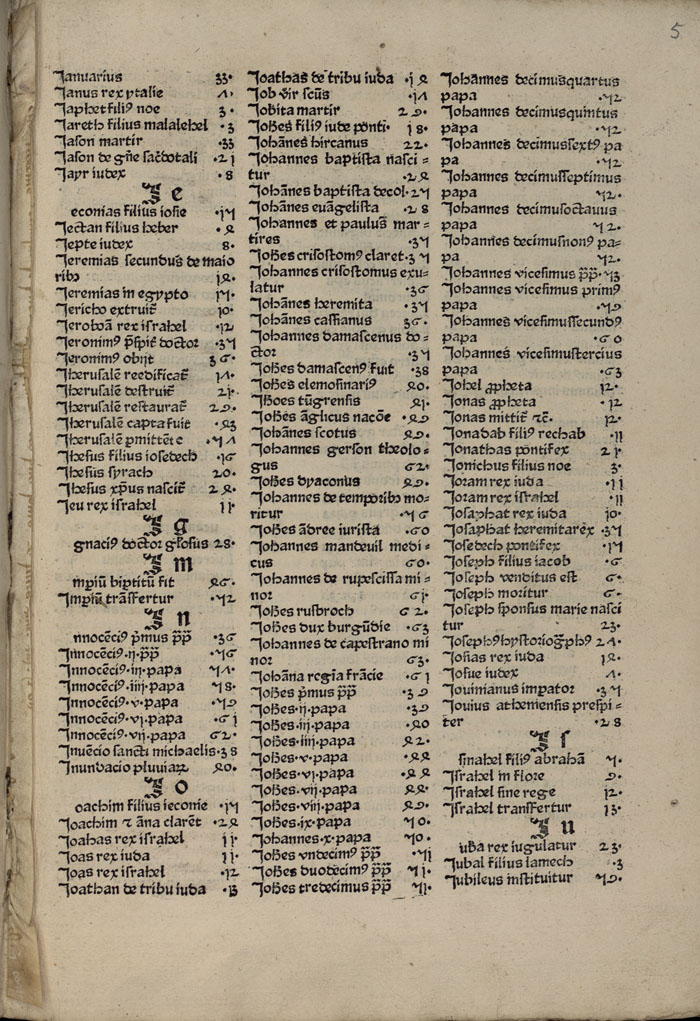 Januarius 33·
Janus rex ytalie ·7·
Japhet fili⁹ noe 3·
Jareth filius malalehel ·3
Jason martir ·33
Jason de gñe sac̄dotali ·21
Jayr iudex ·8
Je
econias filius iosie ·15
Jectan filius heber ·4
Jepte iudex 8·
Jeremias secundus de maio
rib⁹ 14·
Jeremias in egypto 15·
Jericho extruit̄ 10·
Jeroboā rex israhel ·12
Jeronim⁹ p̄spit̄ doctor ·35
Jeronim⁹ obijt 36·
Jherusalē reedificat̄ 17·
Jherusalē destruit̄ 21·
Jherusalē restaurat̄ 29·
Jherusalē capta fuit ·43
Jherusalē pmittēt e ·57
Jhesus filius iosedech ·16
Jhesus syrach 20·
Jhesus xp̄us nascit̄ 24·
Jeu rex israhel 11·
Jg
gnaci⁹ doctor gl̄osus 28·
Jm
mpiū bip̄titū fit 46·
Jmpiū trāsfertur ·52
Jn
nnocēci⁹ p̄mus pp̄ ·36
Jnnocēci⁹·ij·pp̄ ·56
Jnnocēci⁹·iij·papa 57·
Jnnocēci⁹·iiij·papa 58·
Jnnocēci⁹·v·papa ·59
Jnnocēci⁹·vj·papa ·61
Jnnocēci⁹·vij·papa 62·
Jnuēcio sancti michaelis·38
Jnundacio pluuiaꝝ 40·
Jo
oachim filius ieconie ·15
Joachim ⁊ āna claret̄ ·24
Joahas rex israhel 11·
Joas rex iuda 11·
Joas rex israhel ·12
Joathan de tribu iuda ·13
Joathas de tribu iuda ·14
Job vir scūs ·17
Jobita martir 29·
Joh̄es fili⁹ iude ponti· 18·
Johānes hircanus 22·
Johannes baptista nasci-
tur ·24
Johānes baptista decol·25
Johānes euāgelista ·28
Johannes et paulus mar-
tires ·35
Joh̄es crisostom⁹ claret·35
Johannes crisostomus exu-
latur ·36
Johānes heremita ·35
Johānes cassianus 36·
Johannes damascenus do-
ctor ·35
Joh̄es damascen⁹ fuit ·38
Joh̄es elemosinari⁹ 40·
Jh̄oes tūgrensis 41·
Joh̄es āglicus nacōe ·49
Johānes scotus 49·
Johannes gerson theolo-
gus 62·
Joh̄es dyaconus 49·
Johannes de temporib⁹ mo-
ritur ·56
Joh̄es ādree iurista ·60
Johannes mandeuil medi-
cus 60·
Johannes de rupescissa mi-
nor 61·
Joh̄es rusbroch 62·
Joh̄es dux burgūdie ·63
Johannes de capestrano mi
nor 63·
Johāna regīa frācie ·61
Joh̄es p̄mus pp̄ ·39
Joh̄es·ij·papa ·39
Joh̄es·iij·papa ·40
Joh̄es·iiij·papa 42·
Joh̄es·v·papa ·44
Joh̄es·vj·papa ·44
Joh̄es·vij·papa 44·
Joh̄es·viij·papa 49·
Joh̄es·ix·papa 50·
Johannes·x·papa 50·
Joh̄es vndecim⁹ pp̄ ·51
Joh̄es duodecim⁹ pp̄ 51·
Joh̄es tredecimus pp̄ 51·
Johānes decimusquartus
papa ·52
Johannes decimusquintus
papa ·52
Johannes decimussext⁹ pa
pa ·52
Johannes decimusseptimus
papa 52·
Johannes decimusoctauus
papa 52·
Johannes decimusnon⁹ pa-
pa 52·
Johannes vicesimus pp̄·53
Johannes vicesimus prim⁹
papa ·59
Johannes vicesimussecund⁹
papa ·60
Johannes vicesimustercius
papa ·63
Johel ꝓpheta 12·
Jonas ꝓpheta ·12
Jonas mittit̄ ⁊c̄· 12·
Jonadab fili⁹ rechab ·11
Jonathas pontifex 21·
Jonichus filius noe 3·
Joram rex iuda ·11
Joram rex israhel ·11
Josaphat rex iuda 10·
Josaphat heremita rex ·35
Josedech pontifex ·15
Joseph filius iacob ·6
Joseph venditus est 6·
Joseph moritur 6·
Joseph sponsus marie nasci
tur 23·
Joseph⁹ hystoriogꝑh⁹ 27·
Josias rex iuda 14·
Josue iudex ·7
Jouinianus impator ·35
Jouius atheniensis prespi-
ter ·28
Js
smahel fili⁹ abrahā 5·
Jsrahel in flore 9·
Jsrahel sine rege 12·
Jsrahel transfertur 13·
Ju
uba rex iugulatur 23·
Jubal filius lamech ·3
Jubileus instituitur 59·
5